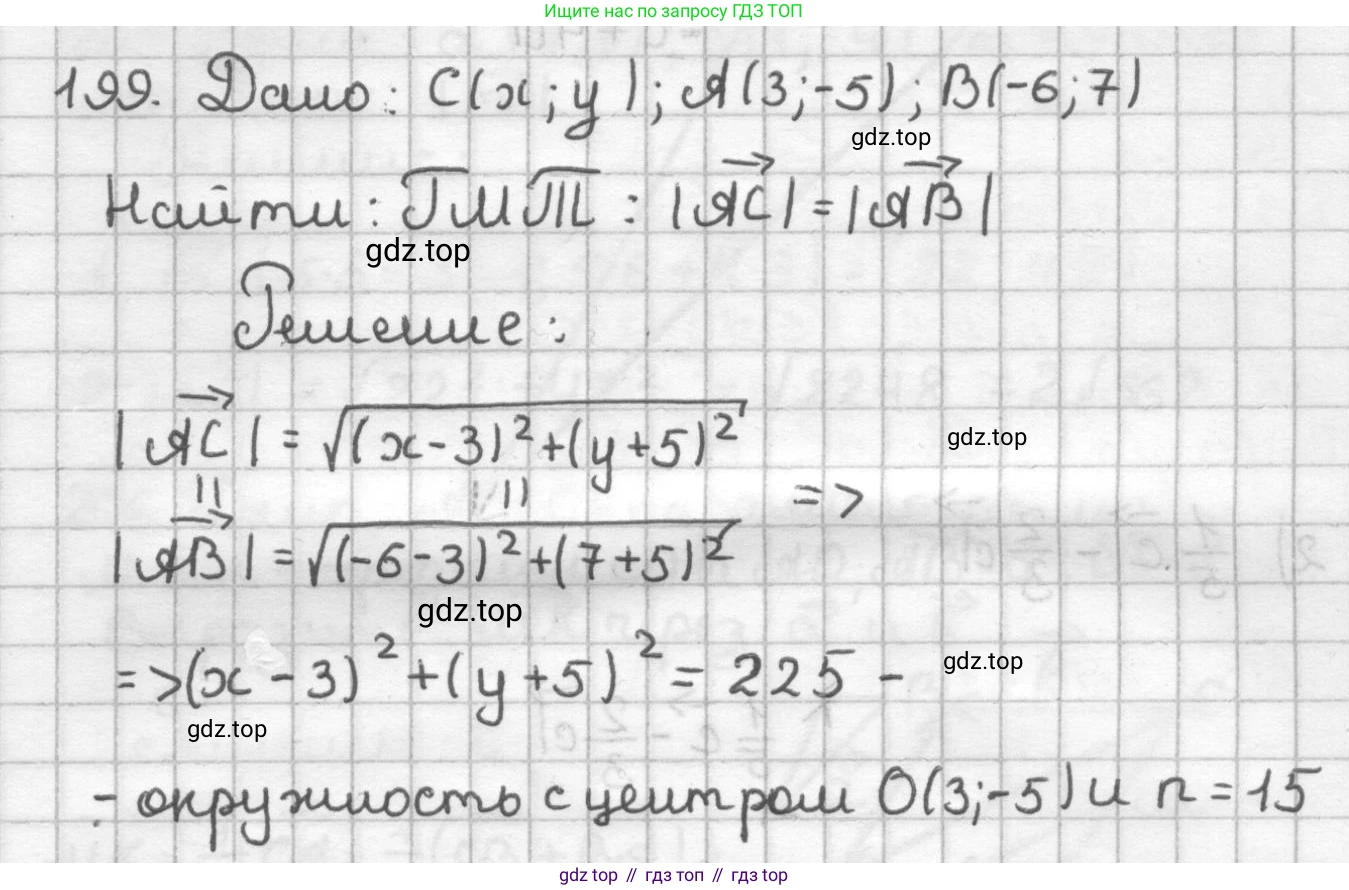 Ищите нас по запросу ГДЗ ТОП
199. Дано: C(x; y); A(3; -5); B(-6; 7)
gdz.top
Найти: ГМТ : |AC→| = |AB→|
gdz.top
Решение:
|AC→| = √((x-3)²+(y+5)²)
gdz.top
|| || =>
|AB→| = √((-6-3)²+(7+5)²)
gdz.top
=>(x-3)²+(y+5)² = 225 -
gdz.top
gdz.top
- окружность с центром O(3; -5) и r = 15
gdz top // гдз топ // гдз top